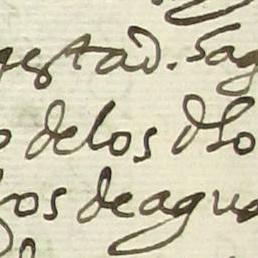 gestad. Sag
o delos dho
ros deagua